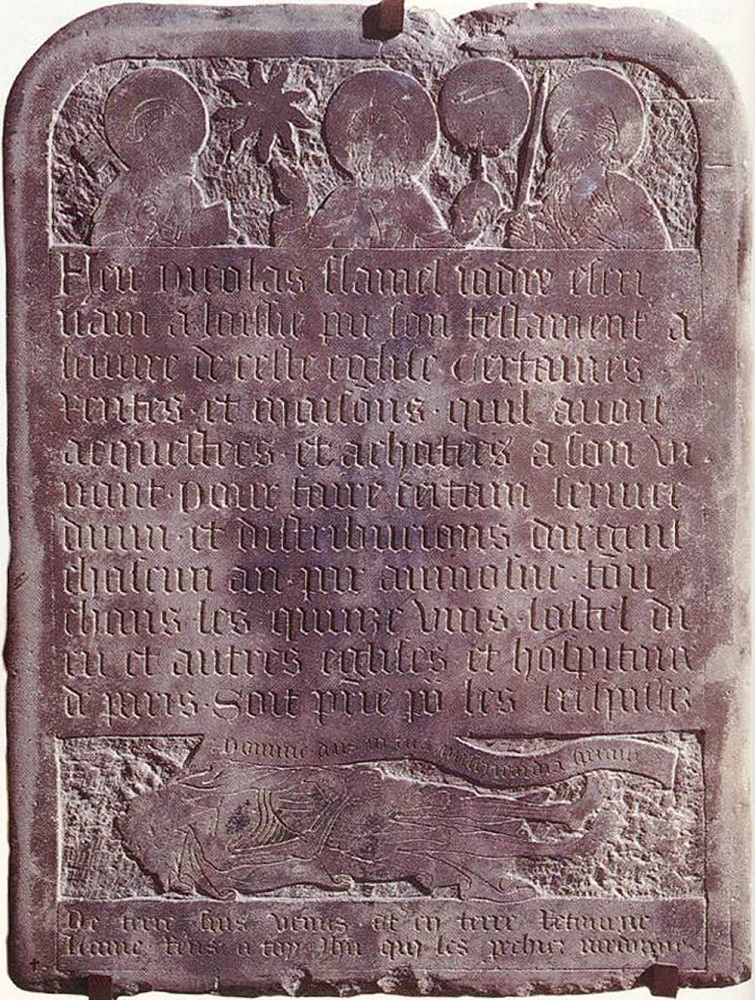 Feu nicolas flamel iadis escri
uain a laissie par son testament a
leuure de ceste eglise certaines
rentes et maisons quil auoit
acquestees et achatees a son vi
uant pour faire certain seruice
diuin et distribucions dargent
chascun an par aumosne tou
chans les quinze vins lostel di
eu et autres eglises et hospitaux
de paris Soit prie por les trespassez
Domine deus in tua misericordia speraui
De terre suis venus et en terre retourne
Lame rens a toy Jhu qui les pechiez